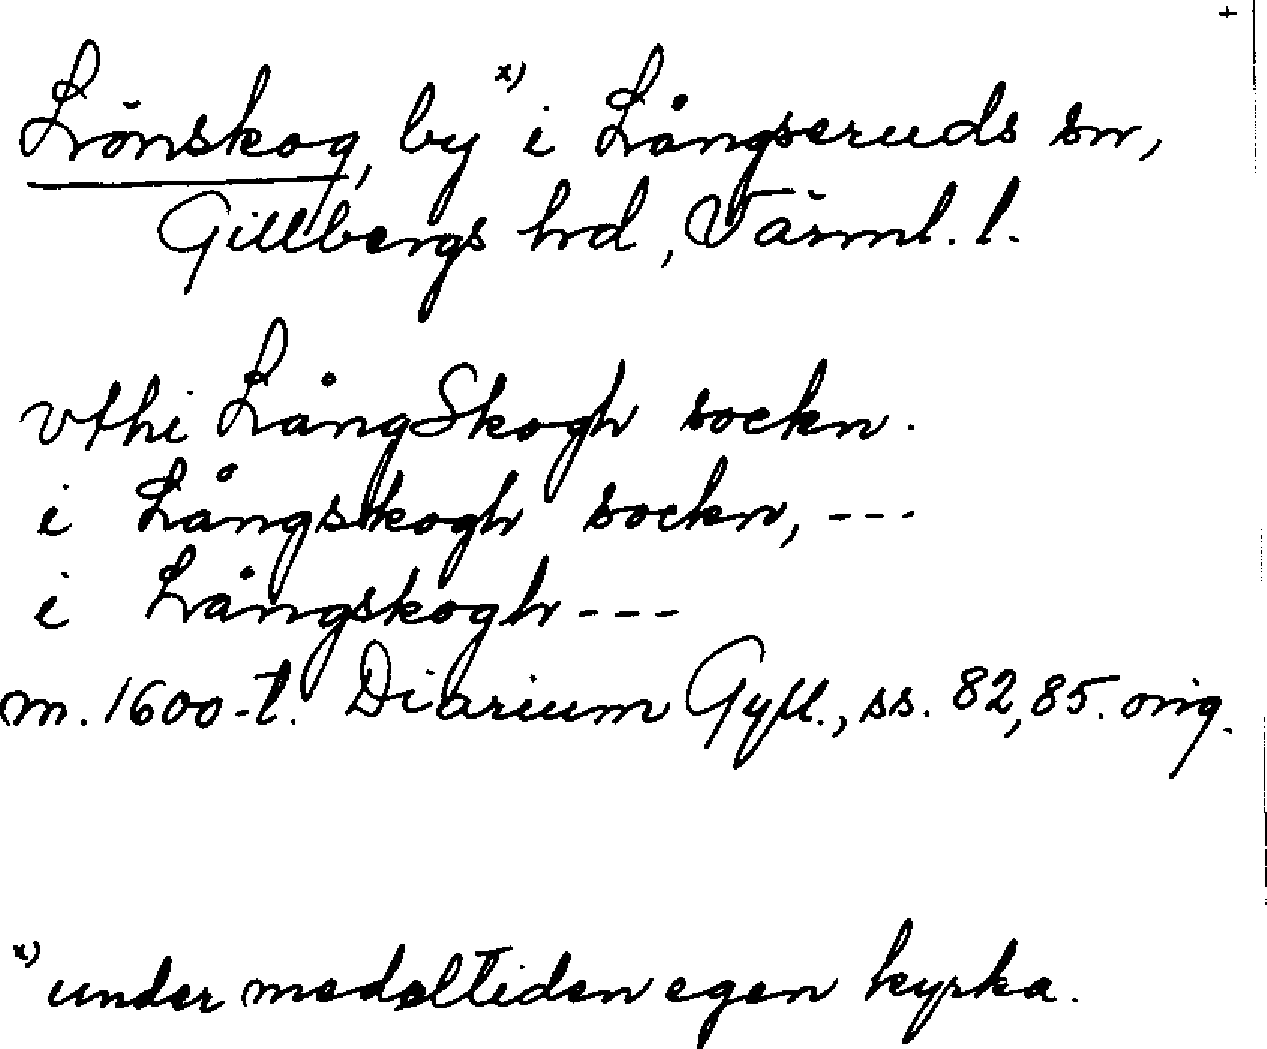 +
Lönskog, by x) i Långseruds sn,
Gillbergs hrd, Värml. l.
vthi LångSkogh sockn.
i Långskogh sockn, ---
i Långskogh ---
m. 1600-t. Diarium Gyll., ss. 82, 85. orig.
x) under medeltiden egen kyrka.